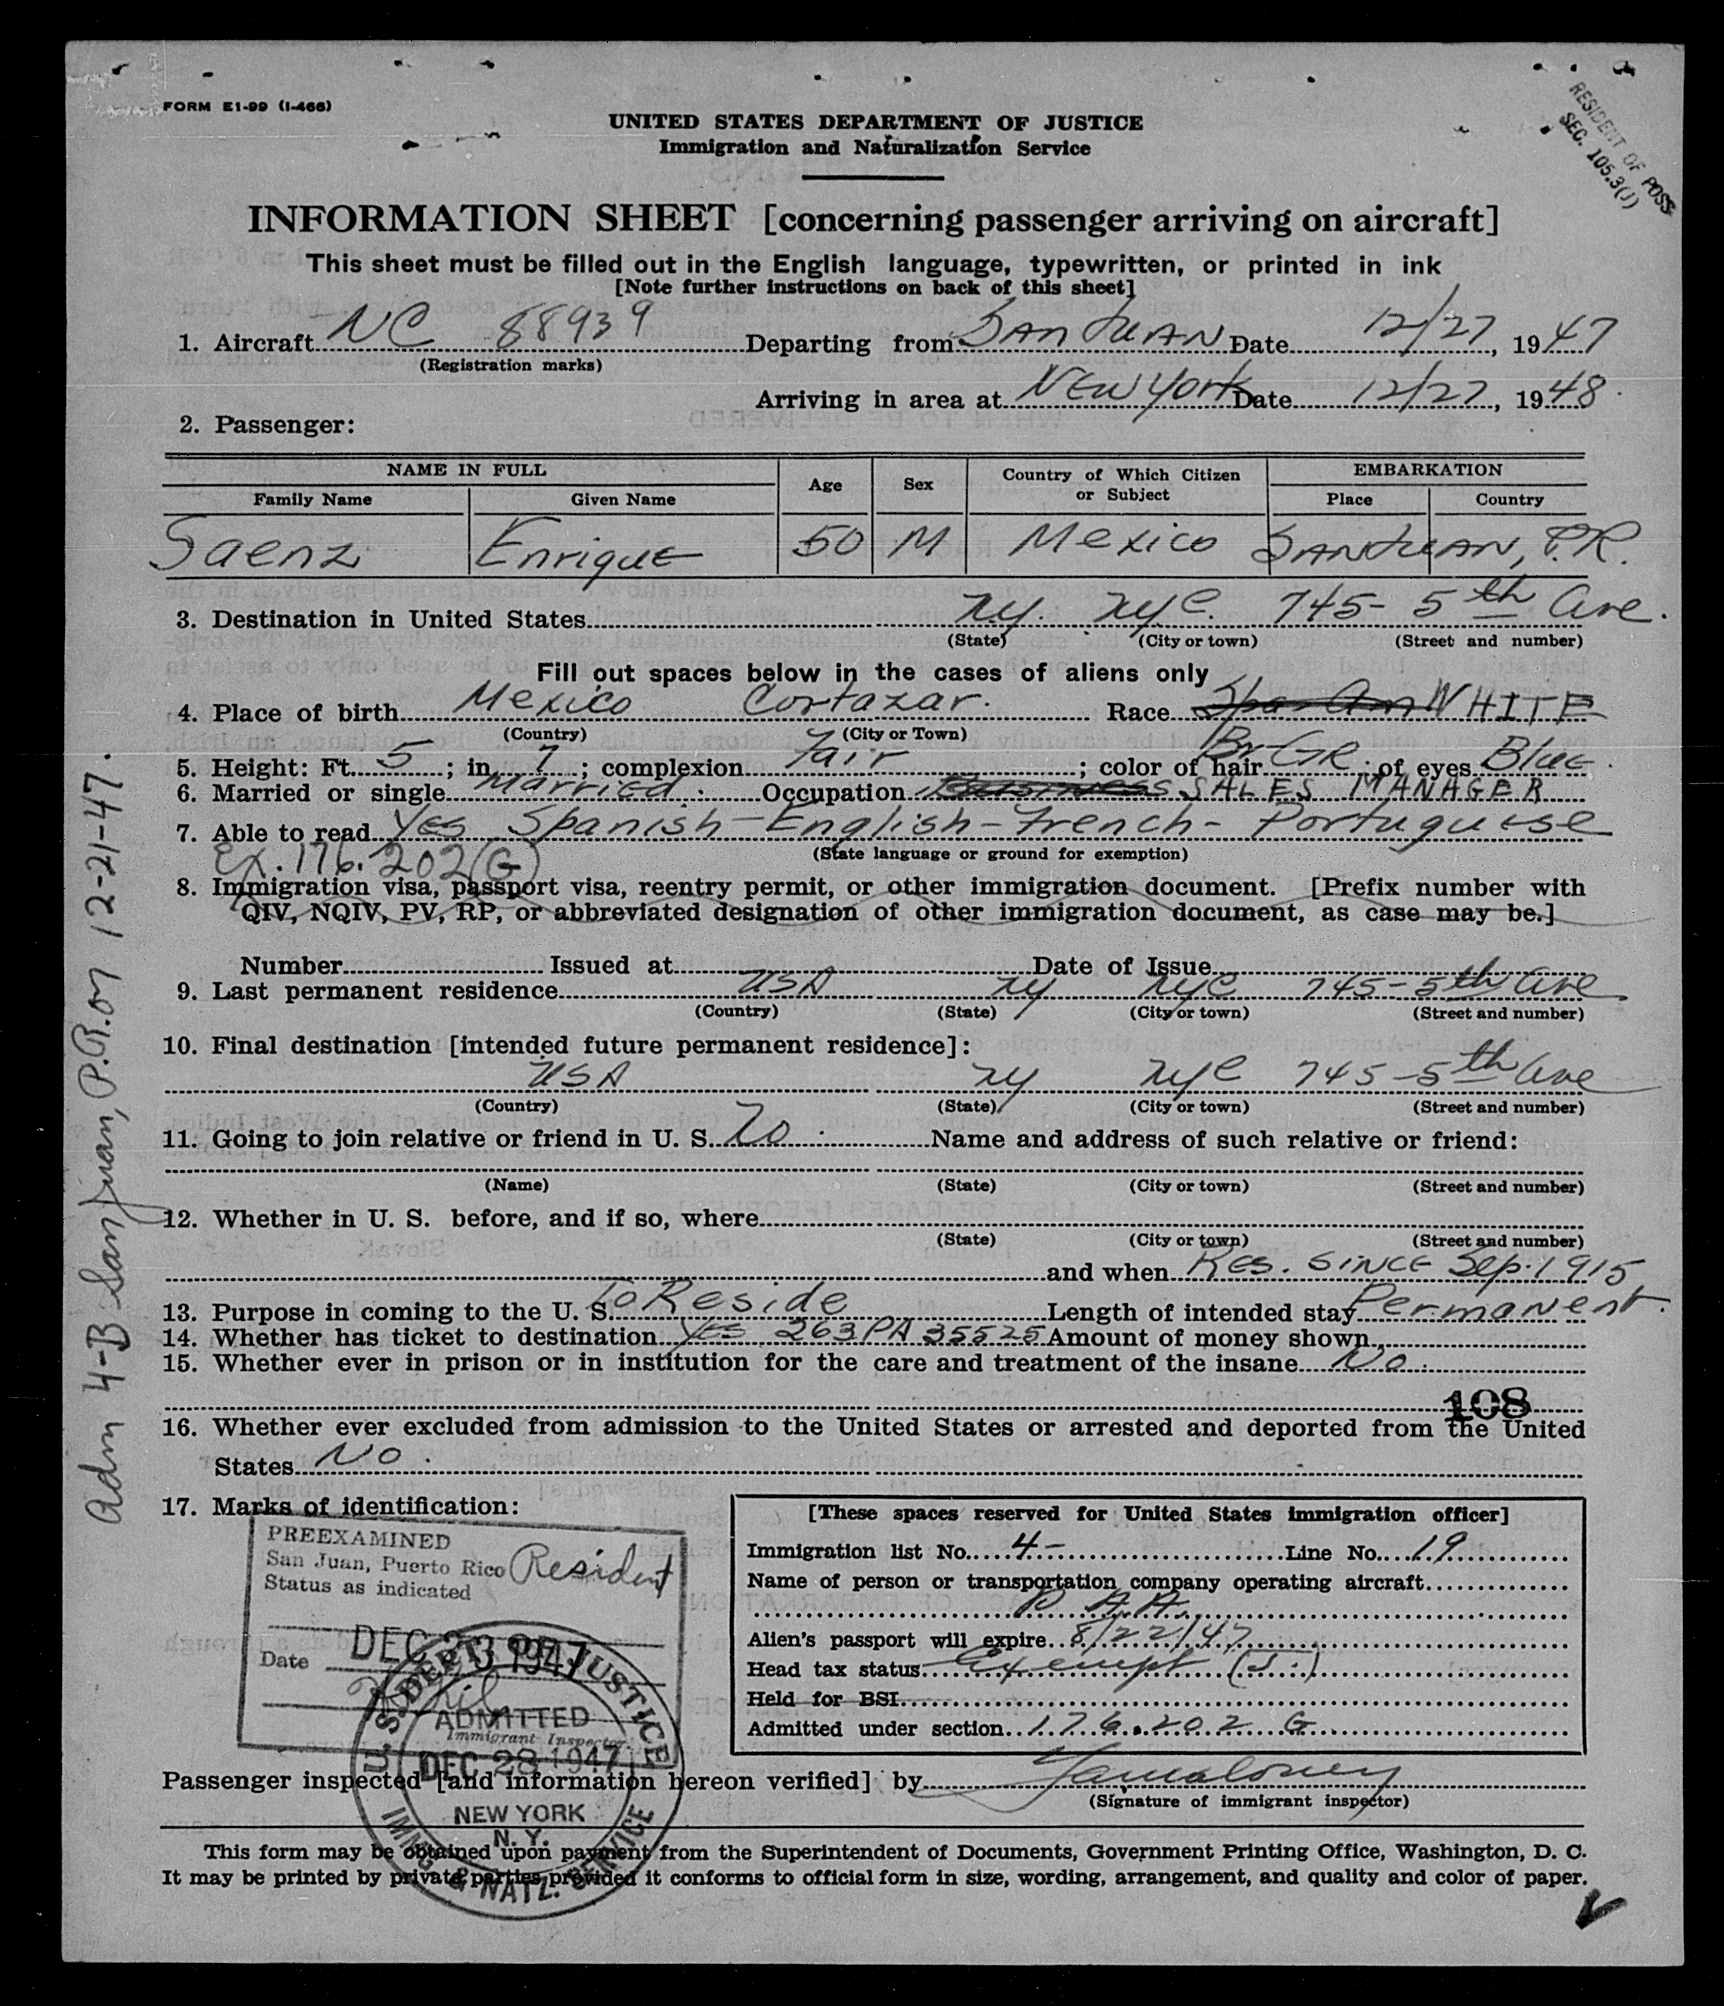 FORM E1-99 (I-466)
RESIDENT OF POSS
SEC. 105.3(J)
UNITED STATES DEPARTMENT OF JUSTICE
Immigration and Naturalization Service
INFORMATION SHEET [concerning passenger arriving on aircraft]
This sheet must be filled out in the English language, typewritten, or printed in ink
[Note further instructions on back of this sheet]
1. Aircraft NC 88939 Departing from SAN JUAN Date 12/27, 1947
(Registration marks)
Arriving in area at NEW York Date 12/27, 1948.
2. Passenger:
NAME IN FULL Age Sex Country of Which Citizen or Subject EMBARKATION
Family Name Given Name Place Country
Saenz Enrique 50 M Mexico SAN JUAN, P.R.
3. Destination in United States NY. NYC. 745- 5th Ave.
(State) (City or town) (Street and number)
Fill out spaces below in the cases of aliens only
4. Place of birth Mexico Cortazar. Race Span Am WHITE
(Country) (City or Town)
5. Height: Ft. 5; in. 7; complexion Fair; color of hair Br-GR. of eyes Blue.
6. Married or single Married. Occupation Business SALES MANAGER
7. Able to read Yes Spanish-English-French-Portuguese
(State language or ground for exemption)
Ex. 176.202(G)
8. Immigration visa, passport visa, reentry permit, or other immigration document. [Prefix number with
QIV, NQIV, PV, RP, or abbreviated designation of other immigration document, as case may be.]
Number Issued at Date of Issue
9. Last permanent residence USA NY NYC 745-5th Ave
(Country) (State) (City or town) (Street and number)
10. Final destination [intended future permanent residence]:
USA NY NYC 745-5th Ave
(Country) (State) (City or town) (Street and number)
11. Going to join relative or friend in U. S. No. Name and address of such relative or friend:
(Name) (State) (City or town) (Street and number)
12. Whether in U. S. before, and if so, where
(State) (City or town) (Street and number)
and when Res. SINCE Sep. 1915
13. Purpose in coming to the U. S. To Reside Length of intended stay Permanent.
14. Whether has ticket to destination Yes 263PA 35525 Amount of money shown
15. Whether ever in prison or in institution for the care and treatment of the insane No.
108
16. Whether ever excluded from admission to the United States or arrested and deported from the United
States No.
17. Marks of identification:
PREEXAMINED
San Juan, Puerto Rico Resident
Status as indicated
Date DEC 23 1947
Immigrant Inspector
U. S. DEPT. OF JUSTICE
ADMITTED
DEC 28 1947
NEW YORK
N. Y.
IMMG. & NATZ. SERVICE
[These spaces reserved for United States immigration officer]
Immigration list No. 4- Line No. 19
Name of person or transportation company operating aircraft
P A A
Alien's passport will expire 8/22/47
Head tax status Exempt (J.)
Held for BSI
Admitted under section 176.202 G
Passenger inspected [and information hereon verified] by
(Signature of immigrant inspector)
This form may be obtained upon payment from the Superintendent of Documents, Government Printing Office, Washington, D. C.
It may be printed by private parties provided it conforms to official form in size, wording, arrangement, and quality and color of paper.
Adm 4-B San Juan, P.R. on 12-21-47.